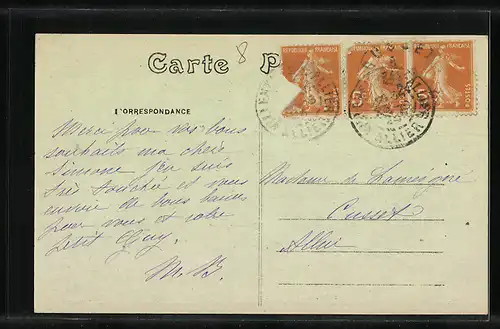 Carte P
8
CORRESPONDANCE
REPUBLIQUE FRANÇAISE
REPUBLIQUE FRANÇAISE
REPUBLIQUE FRANÇAISE
POSTES
ALLIER
ALLIER
Merci pour vos bons
souhaits ma chère
Simone j'en suis
très touchée et vous
envoie de bons baisers
pour vous et votre
petit Guy.
M. B.
Madame de
Cusset
Allier